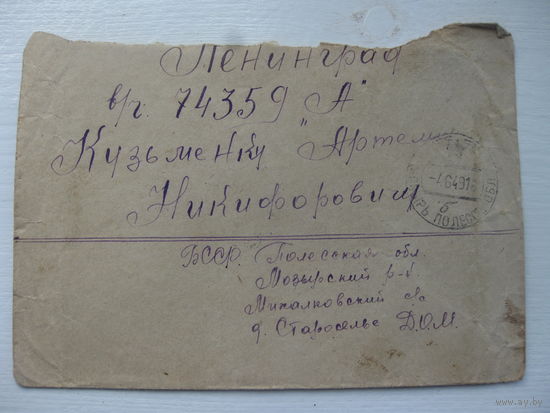 Ленинград
в/ч. 74359 "А"
Кузьменку Артему
Никифоровичу
БССР Полесская обл.
Мозырский р-н
Михалковский с/с
д. Староселье Д.О.М.
ПОЛЕС ОБЛ
www.ay.by